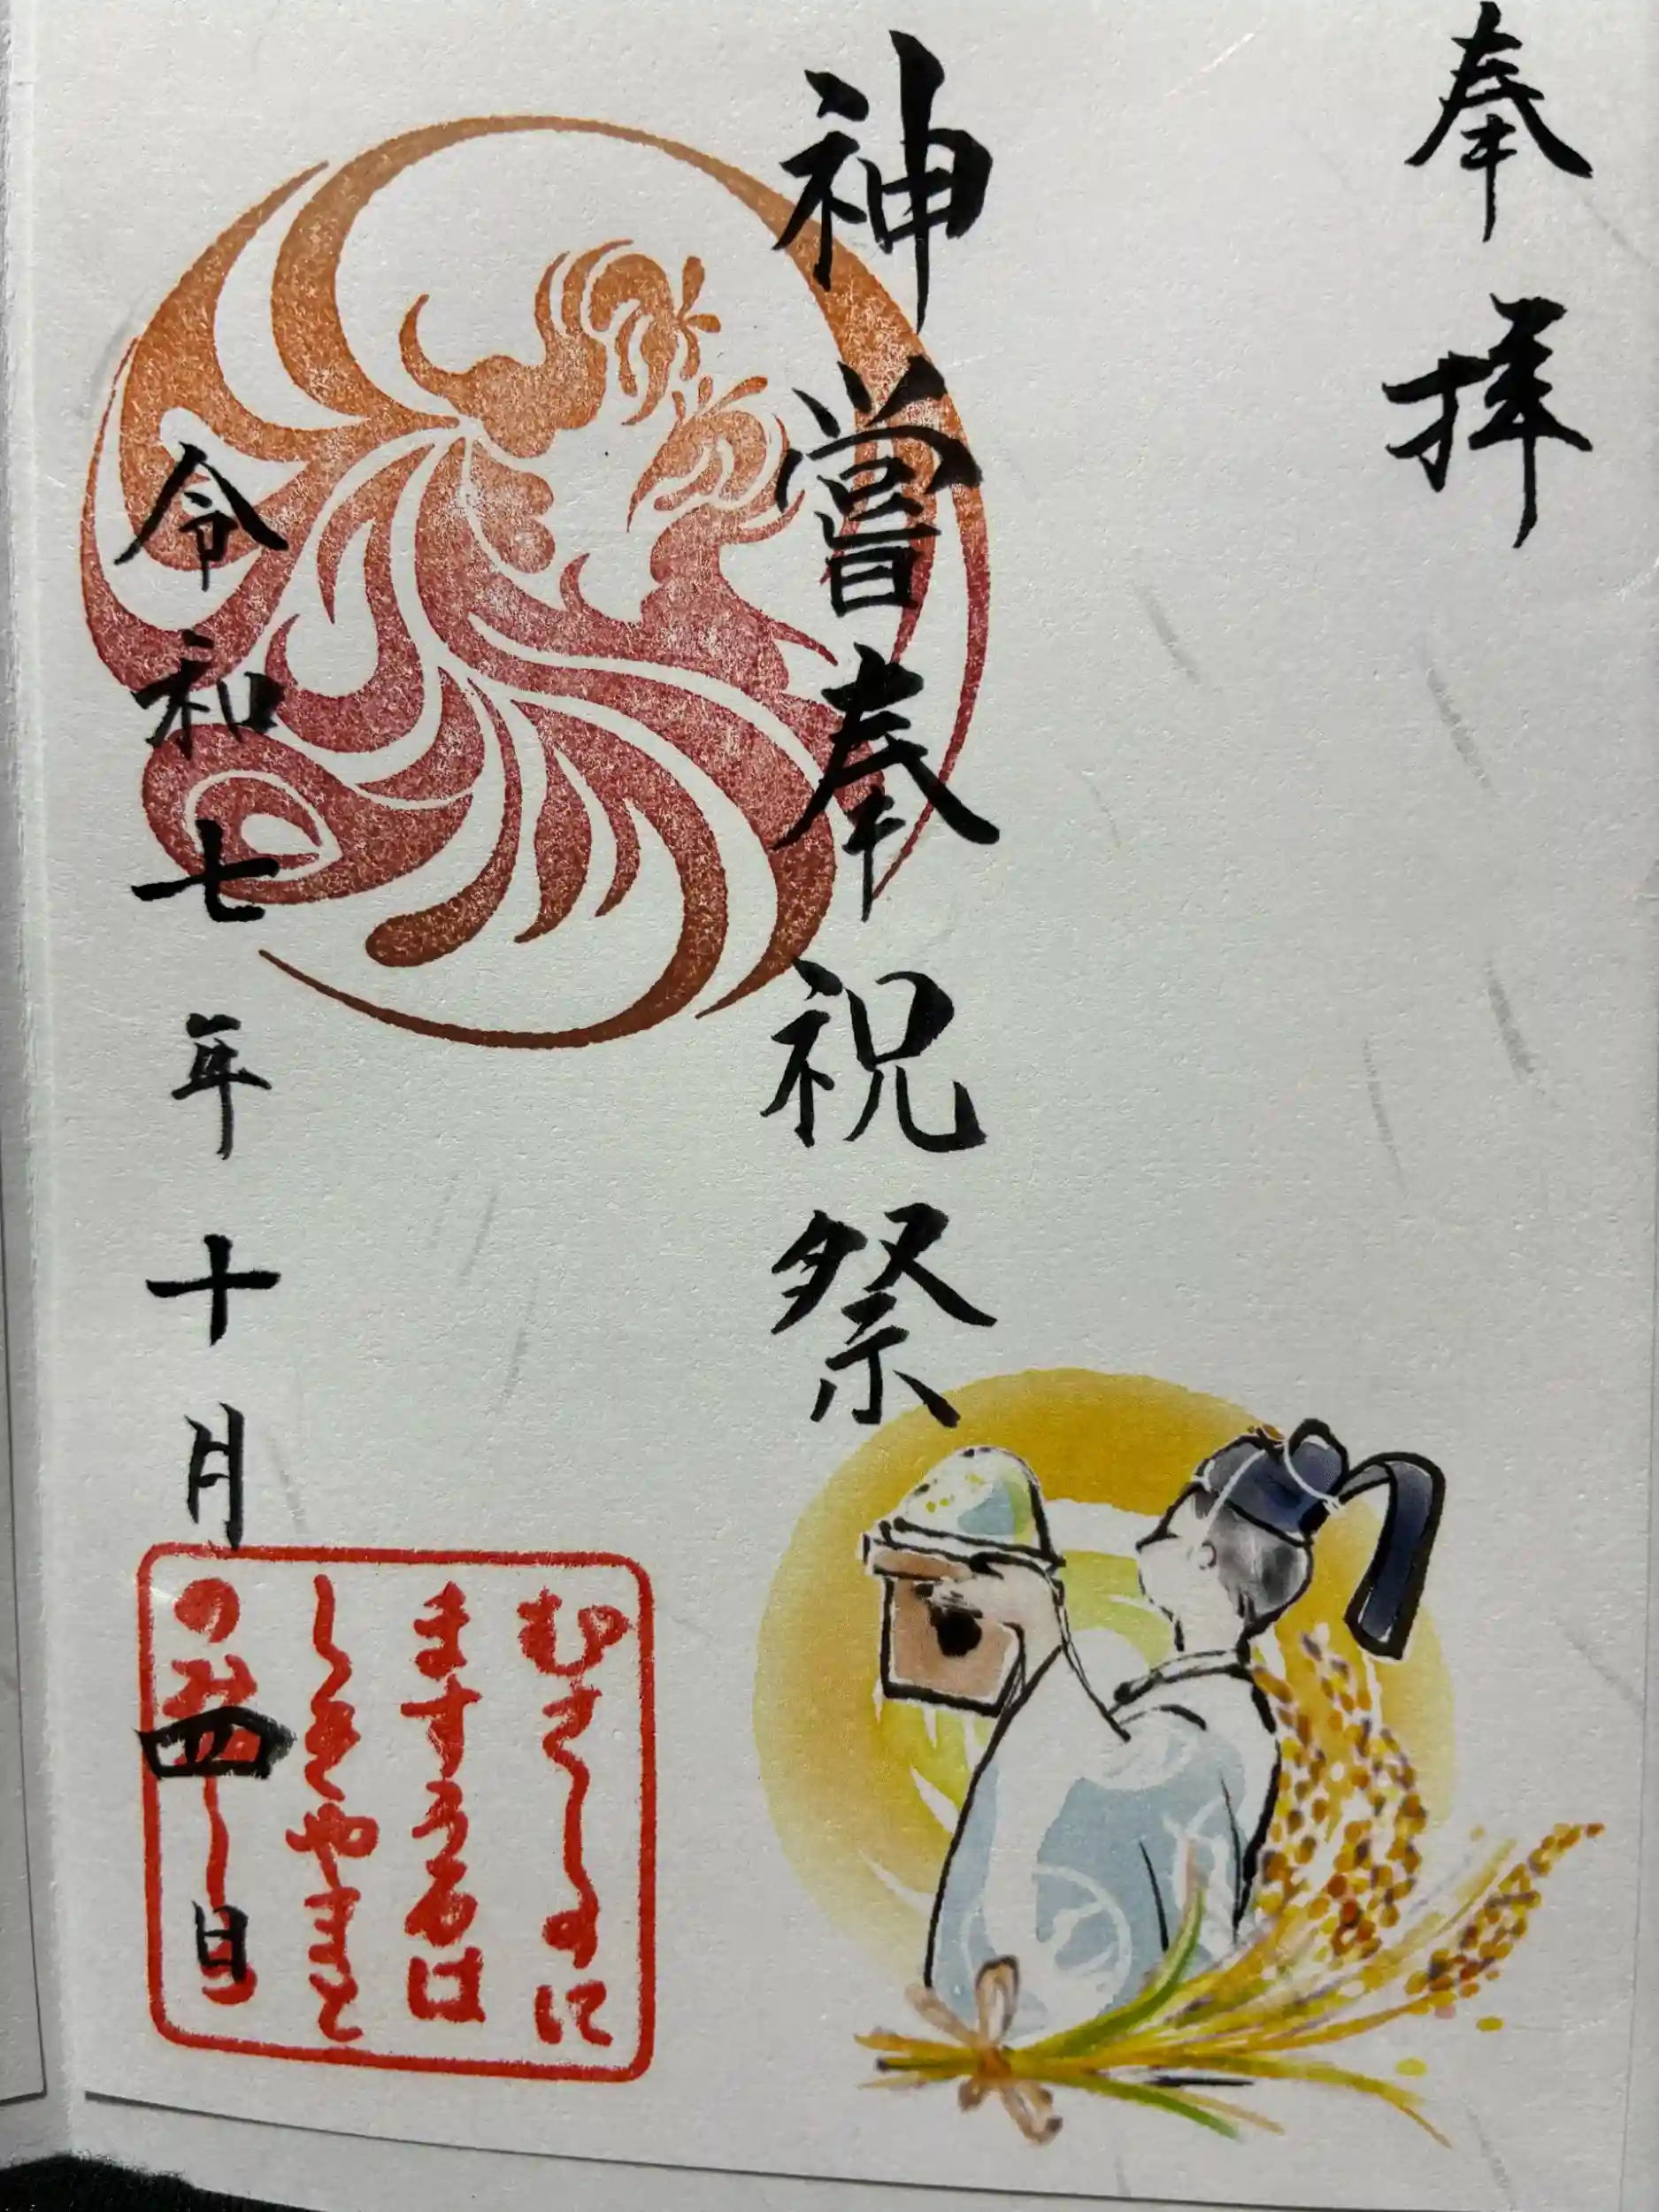 奉拝
神嘗奉祝祭
令和七年十月四日
むさしのに
ますうるは
しきやまと
のみやしろ